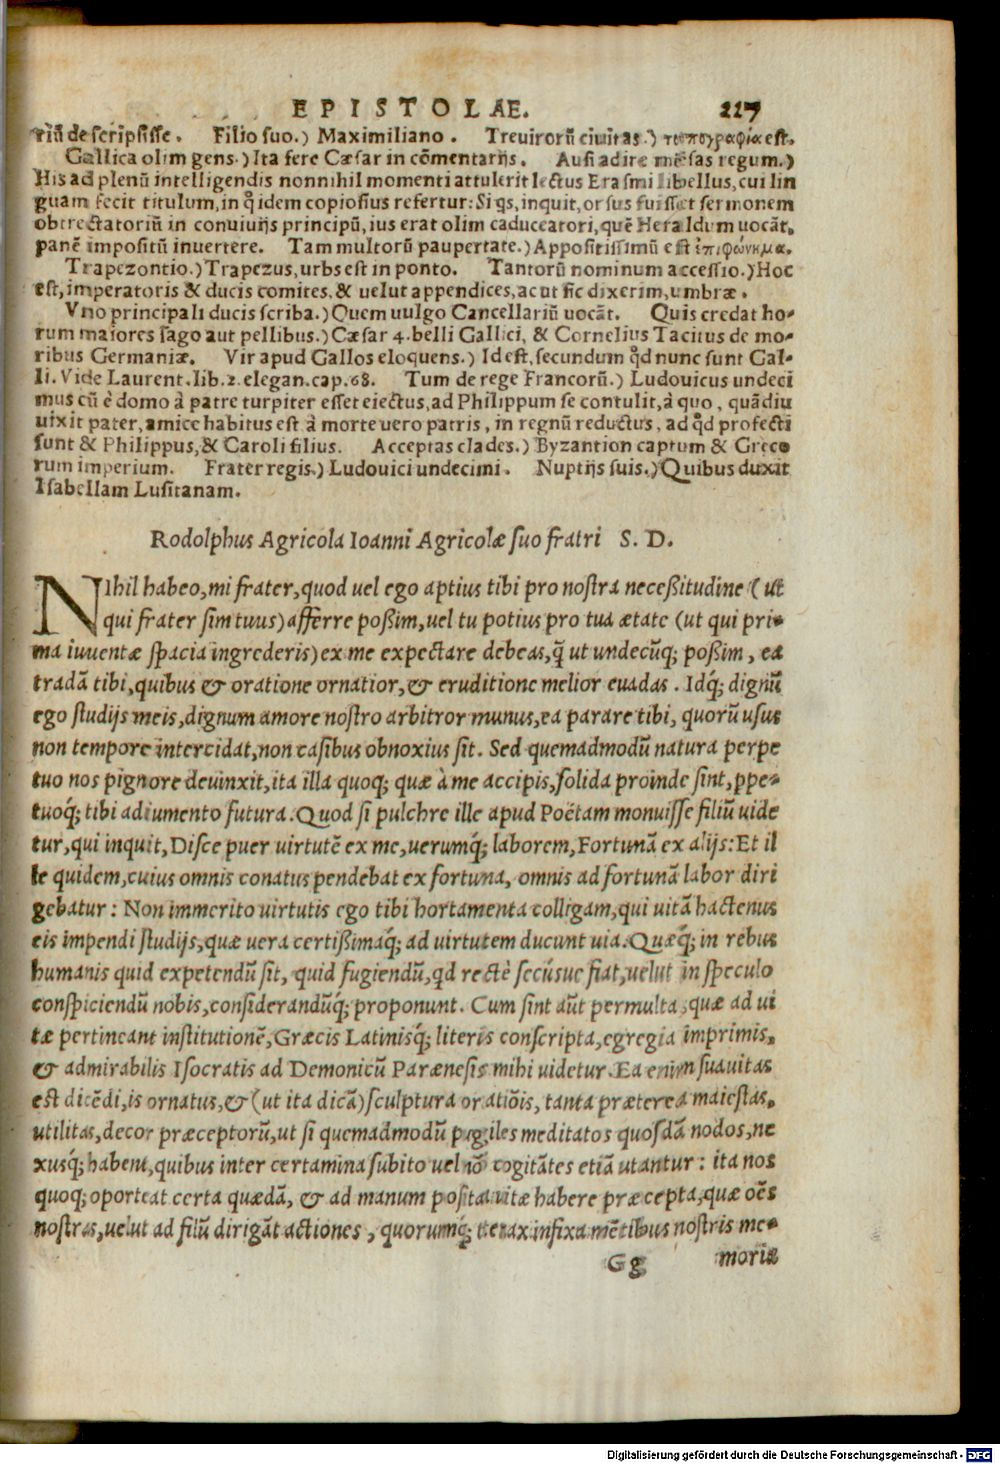 EPISTOLAE. 227
riū descripsisse. Filio suo.) Maximiliano. Treuirorū ciuitas.) τοπογραφία est.
Gallica olim gens.) Ita fere Cæsar in cōmentarijs. Ausi adire mēsas regum.)
His ad plenū intelligendis nonnihil momenti attulerit lectus Erasmi libellus, cui lin
guam fecit titulum, in q̊ idem copiosius refertur: Si qs, inquit, orsus fuisset sermonem
obtrectatoriū in conuiuijs principū, ius erat olim caduceatori, quē Heraldum uocāt,
panē impositū inuertere. Tam multorū paupertate.) Appositissimū est ἐπιφώνημα.
Trapezontio.) Trapezus, urbs est in ponto. Tantorū nominum accessio.) Hoc
est, imperatoris & ducis comites, & uelut appendices, ac ut sic dixerim, umbræ.
Vno principali ducis scriba.) Quem uulgo Cancellariū uocāt. Quis credat ho-
rum maiores sago aut pellibus.) Cæsar 4. belli Gallici, & Cornelius Tacitus de mo-
ribus Germaniæ. Vir apud Gallos eloquens.) Id est, secundum q̊d nunc sunt Gal-
li. Vide Laurent. lib. 2. elegan. cap. 68. Tum de rege Francorū.) Ludouicus undeci
mus cū è domo à patre turpiter esset eiectus, ad Philippum se contulit, à quo, quādiu
uixit pater, amice habitus est à morte uero patris, in regnū reductus, ad q̊d profecti
sunt & Philippus, & Caroli filius. Acceptas clades.) Byzantion captum & Greco
rum imperium. Frater regis.) Ludouici undecimi. Nuptijs suis.) Quibus duxit
Isabellam Lusitanam.
Rodolphus Agricola Ioanni Agricolæ suo fratri S. D.
NIhil habeo, mi frater, quod uel ego aptius tibi pro nostra necessitudine (ut
qui frater sim tuus) afferre possim, uel tu potius pro tua ætate (ut qui pri-
ma iuuentæ spacia ingrederis) ex me expectare debeas, q̄ ut undecūq; possim, ea
tradā tibi, quibus & oratione ornatior, & eruditione melior euadas. Idq́; dignū
ego studijs meis, dignum amore nostro arbitror munus, ea parare tibi, quorū usus
non tempore intercidat, non casibus obnoxius sit. Sed quemadmodū natura perpe
tuo nos pignore deuinxit, ita illa quoq; quæ à me accipis, solida proinde sint, ppe-
tuoq́; tibi adiumento futura. Quod si pulchre ille apud Poëtam monuisse filiū uide
tur, qui inquit, Disce puer uirtutē ex me, uerumq́; laborem, Fortunā ex alijs: Et il
le quidem, cuius omnis conatus pendebat ex fortuna, omnis ad fortunā labor diri
gebatur: Non immerito uirtutis ego tibi hortamenta colligam, qui uitā hactenus
eis impendi studijs, quæ uera certissimaq́; ad uirtutem ducunt uia. Quæq́; in rebus
humanis quid expetendū sit, quid fugiendū, qd rectè secúsue fiat, uelut in speculo
conspiciendū nobis, considerandūq́; proponunt. Cum sint aūt permulta, quæ ad ui
tæ pertineant institutionē, Græcis Latinisq́; literis conscripta, egregia imprimis,
& admirabilis Isocratis ad Demonicū Parænesis mihi uidetur. Ea enim suauitas
est dicēdi, is ornatus, & (ut ita dicā) sculptura oratiōis, tanta præterea maiestas,
utilitas, decor præceptorū, ut si quemadmodū pugiles meditatos quosdā nodos, ne
xusq́; habent, quibus inter certamina subito uel nō cogitātes etiā utantur: ita nos
quoq; oporteat certa quædā, & ad manum posita uitæ habere præcepta, quæ oēs
nostras, uelut ad filū dirigāt actiones, quorumq́; tenax infixa mētibus nostris me-
Gg moria
Digitalisierung gefördert durch die Deutsche Forschungsgemeinschaft - DFG